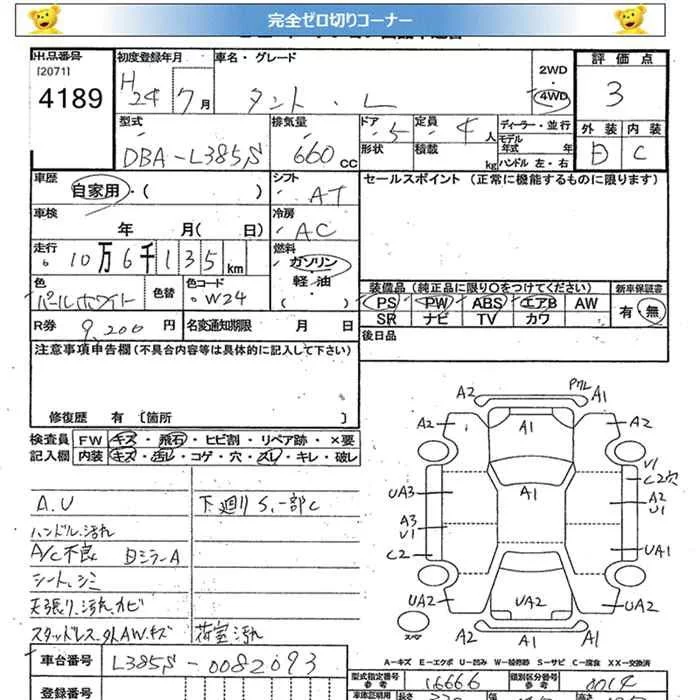 完全ゼロ切りコーナー
出品番号 初度登録年月 車名・グレード 2WD 評価点
[2071] 4189 H24 7月 タント・L 4WD 3
型式 排気量 ドア 5 定員 4人 ディーラー・並行 外装 内装
DBA-L385S 660cc 形状 積載 kg モデル年式 年 C
ハンドル 左・右
車歴 自家用・( ) シフト AT セールスポイント (正常に機能するものに限ります)
車検 年 月( 日) 冷房 AC
走行 10万6千135km 燃料 ガソリン
軽油
色 パールホワイト 色替 色コード W24 ( )
装備品 (純正品に限り○をつけてください) 新車保証書
PS PW ABS エアB AW 有・無
SR ナビ TV カワ
R券 9,200円 名変通知期限 月 日 後日品
注意事項申告欄 (不具合内容等は具体的に記入して下さい)
修復歴 有 [箇所 ]
検査員 FW キズ・飛石・ヒビ割・リペア跡・×要
記入欄 内装 キズ・汚レ・コゲ・穴・スレ・キレ・破レ
A.U 下廻りS、一部C
ハンドル.汚れ
A/C不良 日ミラーA
シート.シミ
天張り.汚れ.カビ
スタッドレス.外AW.キズ 荷室汚れ
A2 A1
A2 A1 A2
V1
C2穴
UA3 A1 A2
U1
A3
U1
C2 UA1
UA2 UA2 A2
スペア A2 A1 A1
A-キズ E-エクボ U-凹み W-補修跡 S-サビ C-腐食 XX-交換済
車台番号 L385S-0082093
型式指定番号 参考 16666 類別区分番号 参考
登録番号 車庫証明用 長さ 幅 高さ